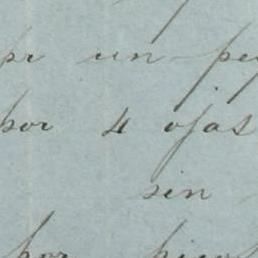 pr un pe
por 4 ojas
sin
por